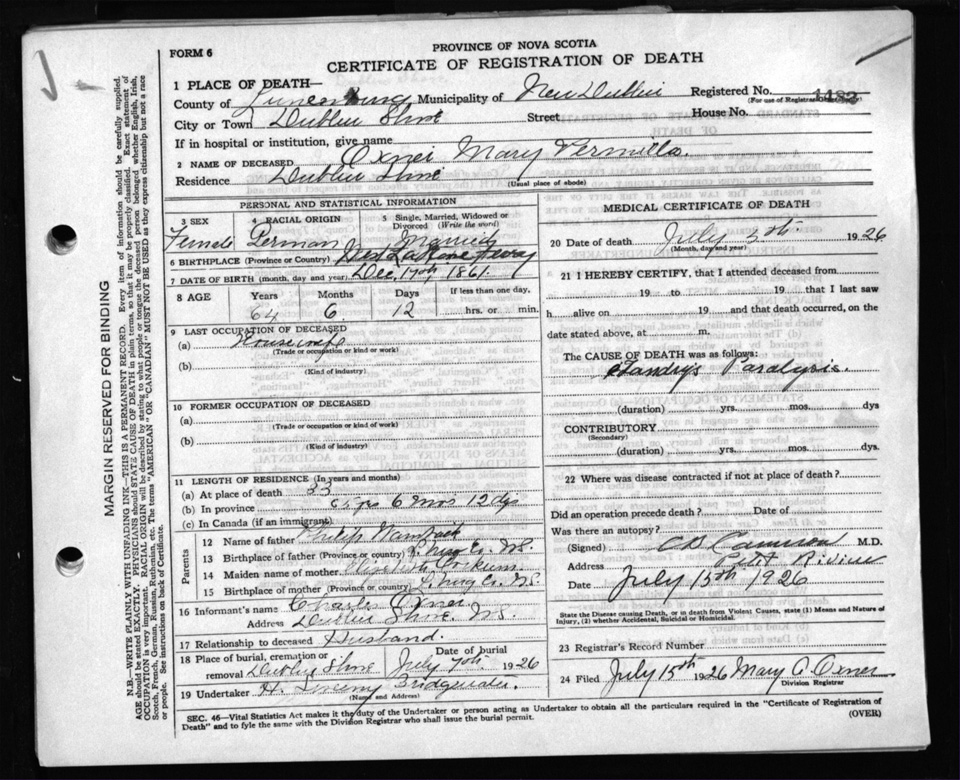 FORM 6
PROVINCE OF NOVA SCOTIA
CERTIFICATE OF REGISTRATION OF DEATH
1 PLACE OF DEATH—
County of Lunenburg Municipality of New Dublin Registered No. 1182
(For use of Registrar
City or Town Dublin Shore Street House No.
If in hospital or institution, give name
2 NAME OF DECEASED Oxner Mary
Residence Dublin Shore
(Usual place of abode)
PERSONAL AND STATISTICAL INFORMATION
3 SEX Female
4 RACIAL ORIGIN German
5 Single, Married, Widowed or Divorced (Write the word) Married
6 BIRTHPLACE (Province or Country) West LaHave Ferry
7 DATE OF BIRTH (month, day and year) Dec. 17th 1861
8 AGE Years Months Days If less than one day,
64 6 12 hrs. or min.
9 LAST OCCUPATION OF DECEASED
(a) Housewife
(Trade or occupation or kind or work)
(b)
(Kind of industry)
10 FORMER OCCUPATION OF DECEASED
(a)
(Trade or occupation or kind or work)
(b)
(Kind of industry)
11 LENGTH OF RESIDENCE (In years and months)
(a) At place of death 33
(b) In province 6 mos 12 dys
(c) In Canada (if an immigrant)
Parents
12 Name of father Philip Wambach
13 Birthplace of father (Province or country) Co. NS.
14 Maiden name of mother Elizabeth Corkum
15 Birthplace of mother (Province or country) Lburg Co. N.S.
16 Informant's name Charles Oxner
Address Dublin Shore. N.S.
17 Relationship to deceased Husband.
18 Place of burial, cremation or removal Dublin Shore Date of burial July 7th 1926
19 Undertaker Bridgewater.
(Name and Address)
MEDICAL CERTIFICATE OF DEATH
20 Date of death July 5th 1926
(Month, day and year)
21 I HEREBY CERTIFY, that I attended deceased from
19 to 19 that I last saw
h alive on 19 and that death occurred, on the
date stated above, at m.
The CAUSE OF DEATH was as follows:
Landrys Paralysis.
(duration) yrs. mos. dys
CONTRIBUTORY
(Secondary)
(duration) yrs. mos. dys
22 Where was disease contracted if not at place of death?
Did an operation precede death? Date of
Was there an autopsy?
(Signed) C D Cameron M.D.
Address Petit Riviere
Date July 15th 1926
State the Disease causing Death, or in death from Violent Causes, state (1) Means and Nature of Injury, (2) whether Accidental, Suicidal or Homicidal.
23 Registrar's Record Number
24 Filed July 15th 1926 Mary C. Oxner
Division Registrar
SEC. 46—Vital Statistics Act makes it the duty of the Undertaker or person acting as Undertaker to obtain all the particulars required in the "Certificate of Registration of
Death" and to fyle the same with the Division Registrar who shall issue the burial permit. (OVER)
MARGIN RESERVED FOR BINDING
N.B.—WRITE PLAINLY WITH UNFADING INK—THIS IS A PERMANENT RECORD. Every item of information should be carefully supplied.
AGE should be stated EXACTLY. PHYSICIANS should STATE CAUSE OF DEATH in plain terms, so that it may be properly classified. Exact statement of
OCCUPATION is very important. RACIAL ORIGIN will be described by stating to what people or tongue the deceased person belonged whether English, Irish,
Scotch, French, German, Russian, Ruthenian, etc. The terms "AMERICAN" OR "CANADIAN" MUST NOT BE USED as they express citizenship but not a race
or people. See instructions on back of Certificate.